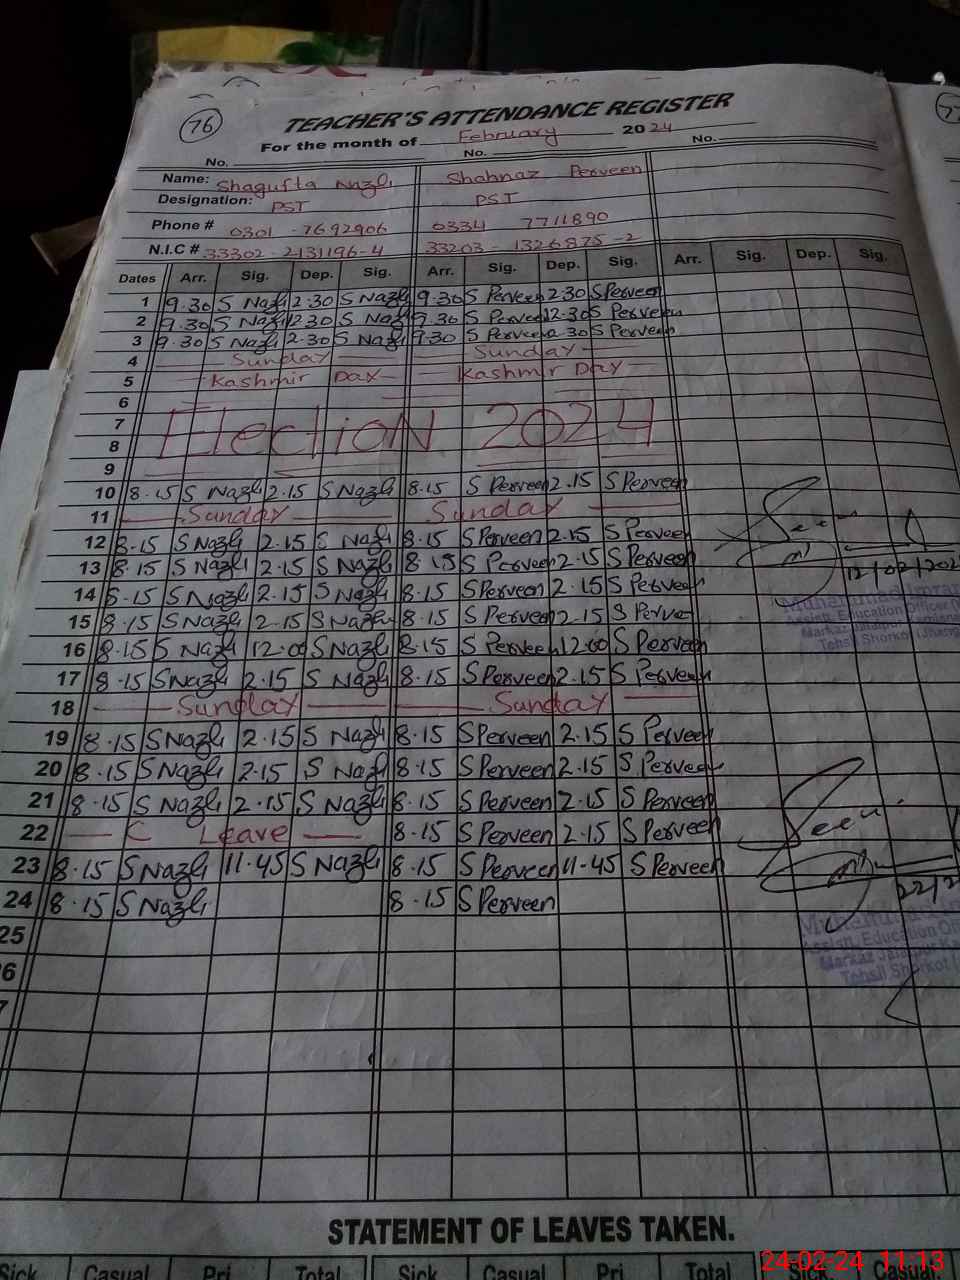 76
TEACHER'S ATTENDANCE REGISTER
For the month of February 2024
No. No. No.
Name: Shagufta Nazli Shahnaz Perveen
Designation: PST PST
Phone # 0301 - 7692906 0334 7711890
N.I.C # 33302 - 2131196-4 33203 - 1326875 - 2
Dates Arr. Sig. Dep. Sig. Arr. Sig. Dep. Sig. Arr. Sig. Dep. Sig.
1 9.30 S Nazli 2.30 S Nazli 9.30 S Perveen 2.30 S Perveen
2 9.30 S Nazli 12.30 S Nazli 9.30 S Perveen 12.30 S Perveen
3 9.30 S Nazli 2.30 S Nazli 9.30 S Perveen 2.30 S Perveen
4 Sunday Sunday
5 Kashmir Day Kashmir Day
6
7 Election 2024
8
9
10 8.15 S Nazli 2.15 S Nazli 8.15 S Perveen 2.15 S Perveen
11 Sunday Sunday
12 8.15 S Nazli 2.15 S Nazli 8.15 S Perveen 2.15 S Perveen
13 8.15 S Nazli 2.15 S Nazli 8.15 S Perveen 2.15 S Perveen
12/02/202
14 8.15 S Nazli 2.15 S Nazli 8.15 S Perveen 2.15 S Perveen
Muhammad Imran
15 8.15 S Nazli 2.15 S Nazli 8.15 S Perveen 2.15 S Perveen
Assistt. Education Officer
Markaz Jalalpur
Tehsil Shorkot (Jhang
16 8.15 S Nazli 12.00 S Nazli 8.15 S Perveen 12.00 S Perveen
17 8.15 S Nazli 2.15 S Nazli 8.15 S Perveen 2.15 S Perveen
18 Sunday Sunday
19 8.15 S Nazli 2.15 S Nazli 8.15 S Perveen 2.15 S Perveen
20 8.15 S Nazli 2.15 S Nazli 8.15 S Perveen 2.15 S Perveen
21 8.15 S Nazli 2.15 S Nazli 8.15 S Perveen 2.15 S Perveen
22 C Leave 8.15 S Perveen 2.15 S Perveen
23 8.15 S Nazli 11-45 S Nazli 8.15 S Perveen 11-45 S Perveen
22/2
24 8.15 S Nazli 8.15 S Perveen
25
Assistt. Education Off
Markaz Jalalpur
6
Tehsil Shorkot
7
STATEMENT OF LEAVES TAKEN.
Sick Casual Pri Total Sick Casual Pri Total Sick Casual
24-02-24 11:13